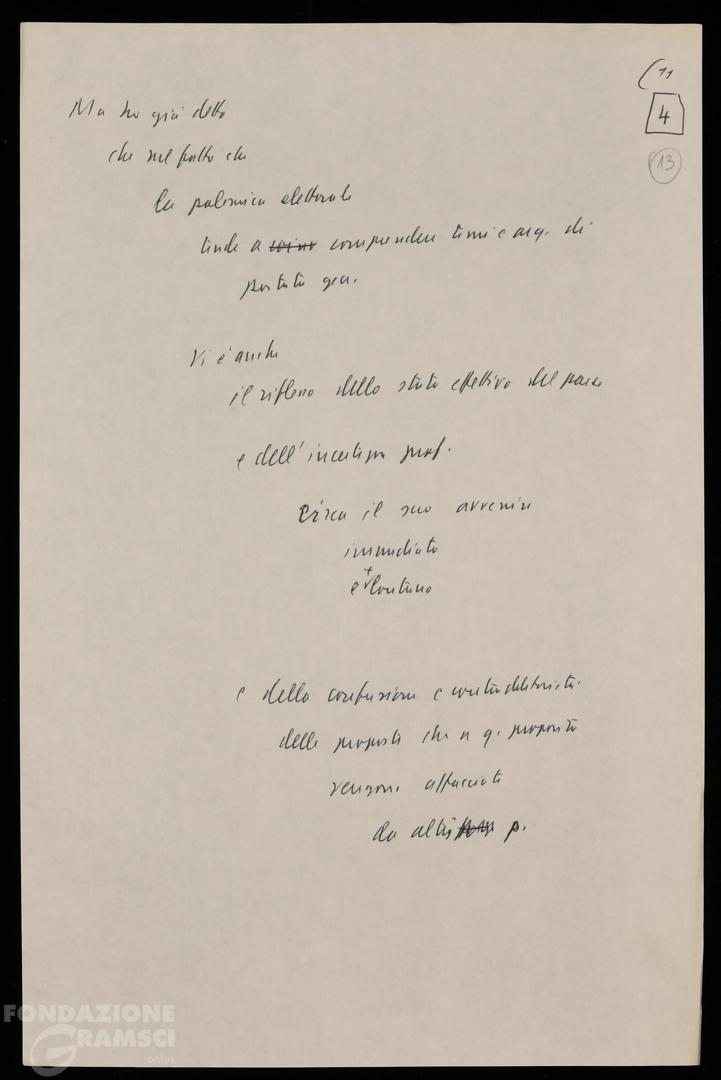 (11
4
13
Ma ho già detto
che nel fatto che
la polemica elettorale
tende a comprendere temi e arg. di
portata gen.
Vi è anche
il riflesso dello stato effettivo del paese
e dell'incertezza prof.
Circa il suo avvenire
immediato
e + lontano
e della confusione e contraddittorietà
delle proposte che a q. proposito
vengono affacciate
da altri p.
FONDAZIONE
GRAMSCI
onlus